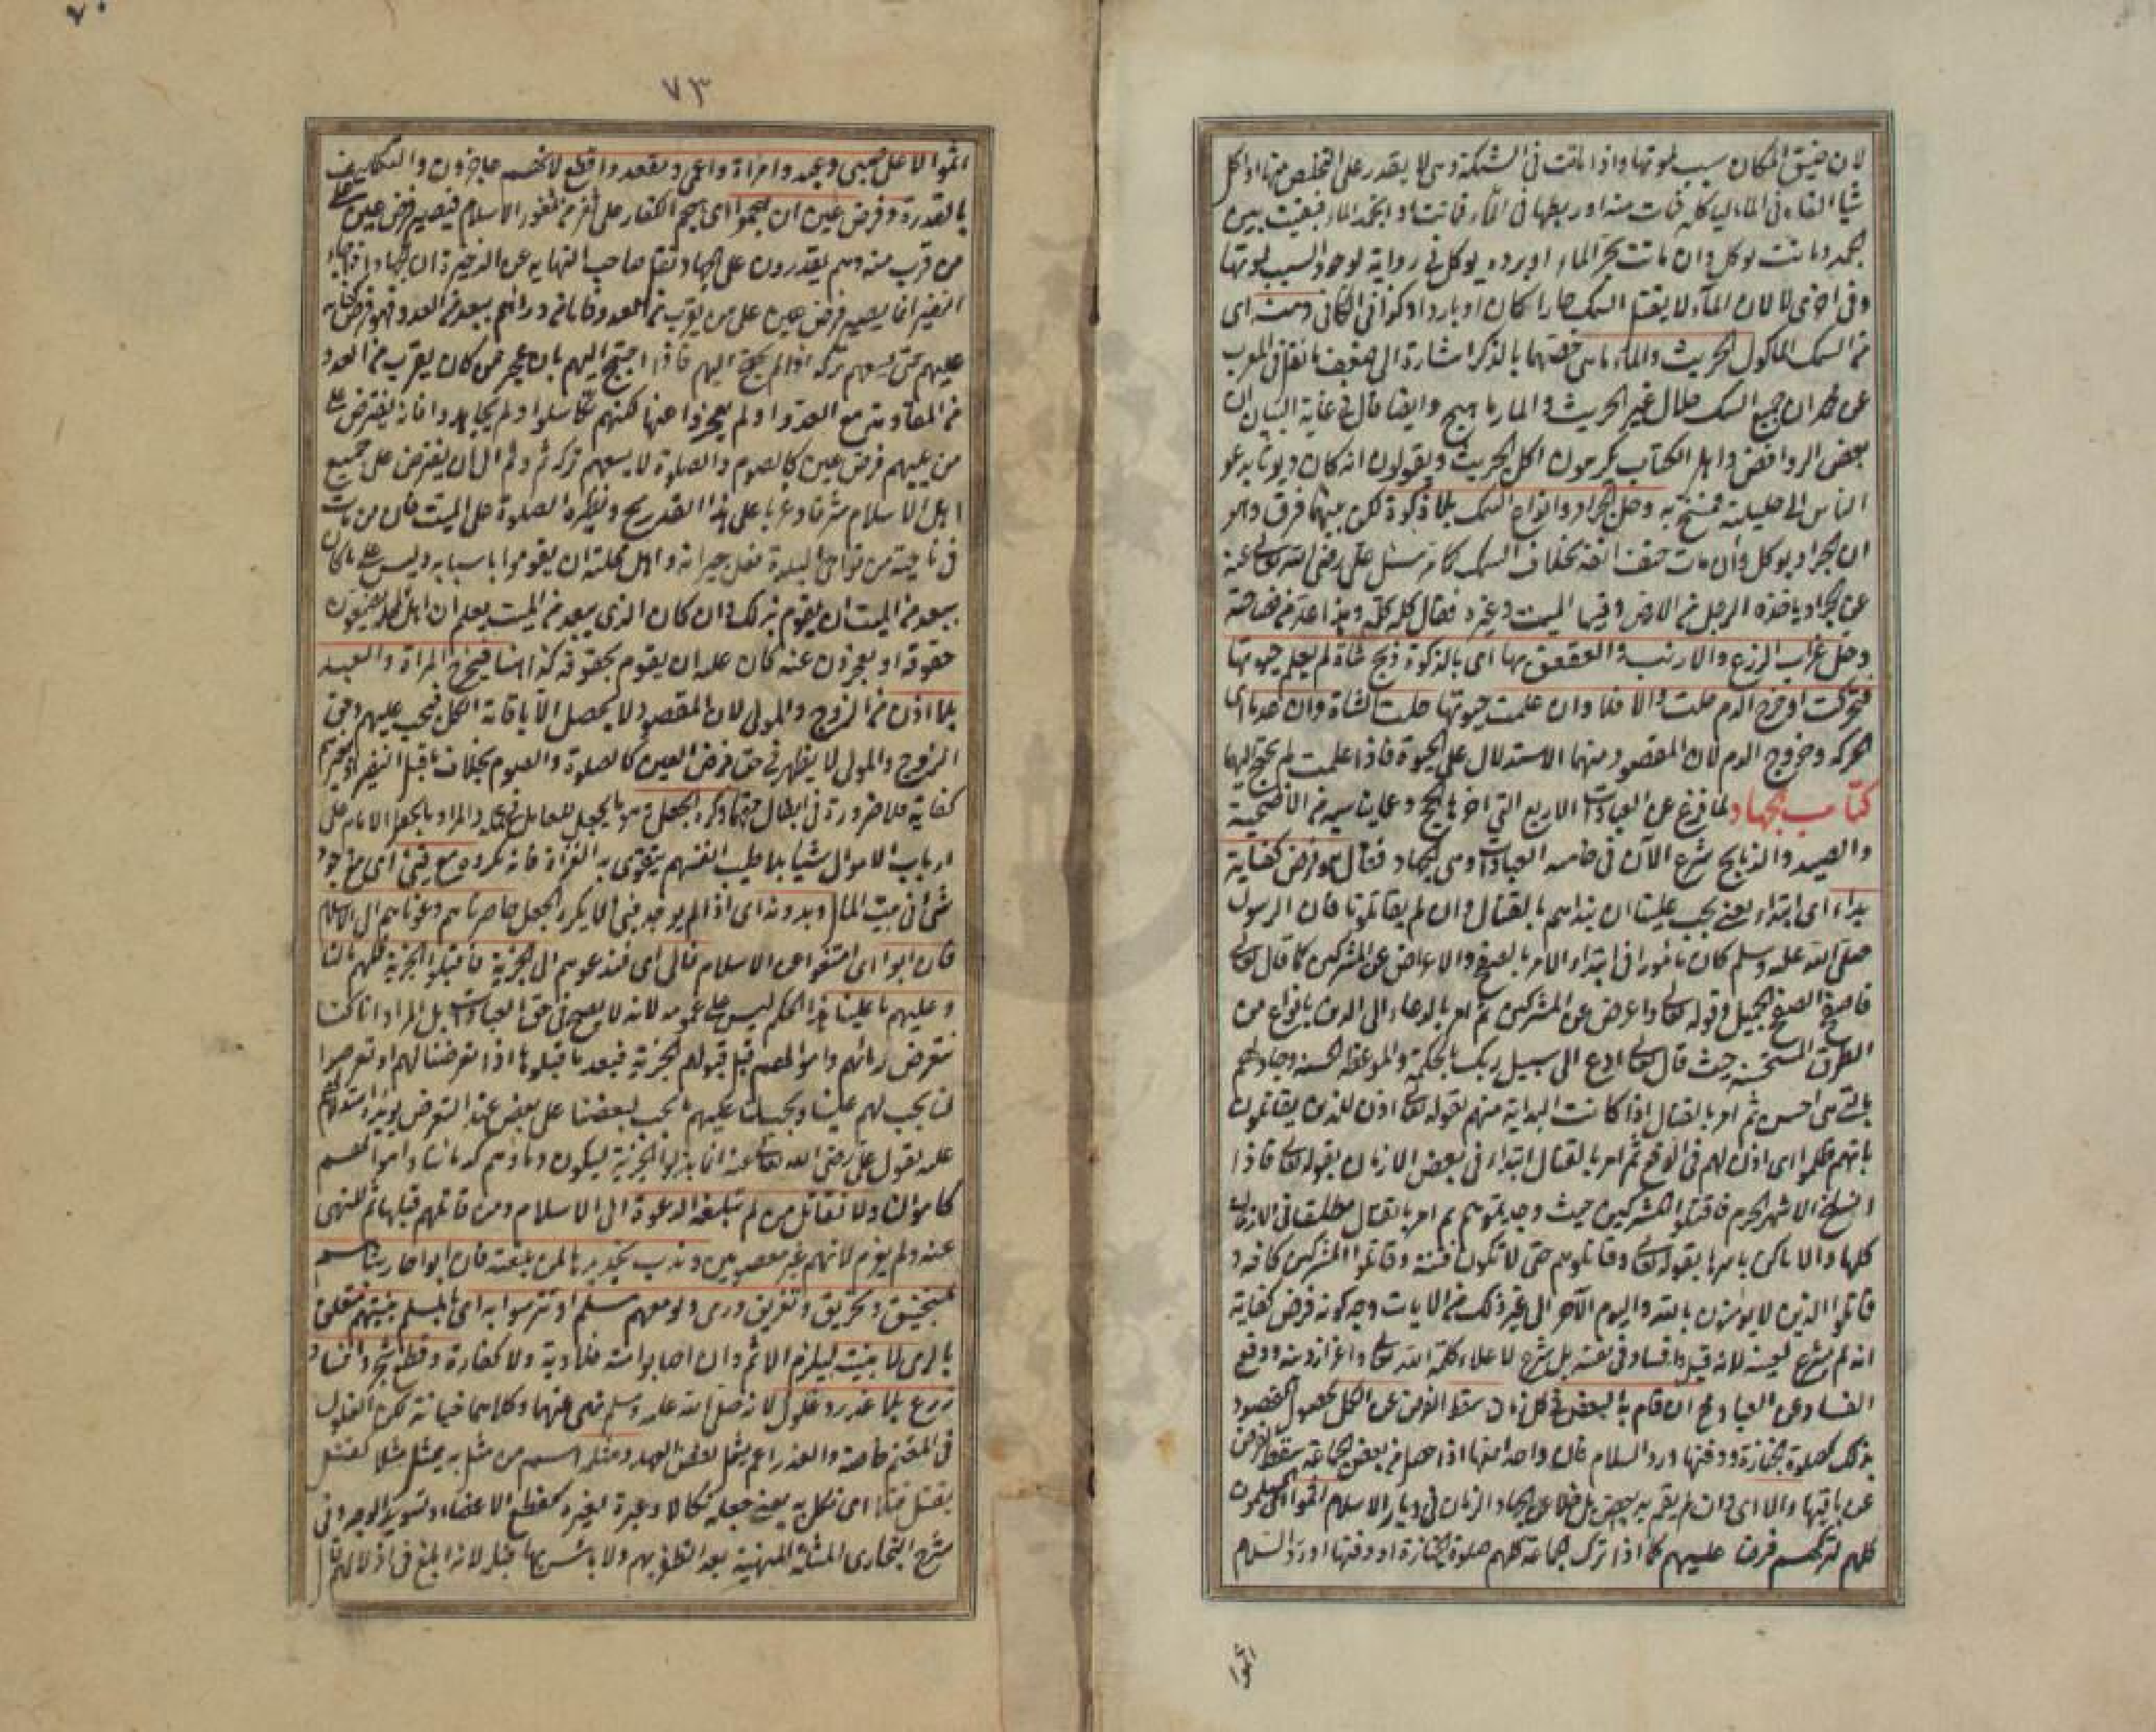 لان ضيق المكان سبب لموتها واذا ماتت في الشبكة وهي لا يقدر على التخلص منها او اكل
شيئا القاه في الماء لياكله فمات منه او ربطها في الماء فماتت او انجمد الماء فبقيت بين
الجمد وماتت يؤكل وان ماتت بحر الماء او برده يؤكل في رواية لوجود السبب لموتها
وفي اخرى لا لان الماء لا يقتل السمك حارا كان او باردا كذا في الكافي ومنه اي
من السمك الماكول الجريث والمارماهي خصهما بالذكر اشارة الى ضعف ما نقل في المغرب
عن محمد ان جميع السمك حلال غير الجريث والمارماهيج وايضا قال في غاية البيان ان
بعض الروافض واهل الكتاب يكرهون اكل الجريث ويقولون انه كان ديوثا يدعو
الناس الى حليلته فمسخ به وحل الجراد وانواع السمك بلا ذكوة لكن بينهما فرق وهو
ان الجراد يؤكل وان مات حتف انفه بخلاف السمك كما مر سئل علي رضي الله تعالى عنه
عن الجراد ياخذه الرجل من الارض وفيها الميت وغيره فقال كله كله وهذا عد من فصاحته
وحل غراب الزرع والارنب والعقعق بها اي بالذكوة ذبح شاة لم يعلم حيوتها
فتحركت او خرج الدم حلت والا فلا وان علمت حيوتها حلت الشاة وان عدما اي
الحركة وخروج الدم لان المقصود منهما الاستدلال على الحيوة فاذا علمت لم يحتج اليهما
كتاب الجهاد لما فرغ عن العبادات الاربع التي اخرها الحج وما يناسبه من الاضحية
والصيد والذبايح شرع الآن في خامسة العبادات وهي الجهاد فقال هو فرض كفاية
بداء اي ابتداء يعني يجب علينا ان نبداهم بالقتال وان لم يقاتلونا فان الرسول
صلى الله عليه وسلم كان مأمورا في ابتداء الامر بالصفح والاعراض عن المشركين كما قال تعالى
فاصفح الصفح الجميل وقوله تعالى واعرض عن المشركين ثم امر بالدعاء الى الدين بانواع من
الطرق المستحسنة حيث قال تعالى ادع الى سبيل ربك بالحكمة والموعظة الحسنة وجادلهم
بالتي هي احسن ثم امر بالقتال اذا كانت البداية منهم لقوله تعالى اذن للذين يقاتلون
بانهم ظلموا اي اذن لهم في الدفع ثم امر بالقتال ابتداء في بعض الازمان بقوله تعالى فاذا
انسلخ الاشهر الحرم فاقتلوا المشركين حيث وجدتموهم ثم امر بالقتال مطلقا في الازمان
كلها والاماكن باسرها بقوله تعالى وقاتلوهم حتى لا تكون فتنة وقاتلوا المشركين كافة و
قاتلوا الذين لا يؤمنون بالله واليوم الآخر الى غير ذلك من الايات وجه كونه فرض كفاية
انه لم يشرع لعينه لانه قتل وافساد في نفسه بل شرع لاعلاء كلمة الله تعالى واعزاز دينه ودفع
الفساد عن العباد فح ان قام به البعض في كل زمان سقط الفرض عن الكل لحصول المقصود
بذلك كصلوة الجنازة ودفنها ورد السلام فان واحدا منها اذا حصل من بعض الجماعة سقط الفرض
عن باقيها والا اي وان لم يقم به بعض بل خلا عن الجهاد الزمان في ديار الاسلام اثموا اي المسلمون
كلهم لتركهم فرضا عليهم كما اذا ترك جماعة كلهم صلوة الجنازة او دفنها او رد السلام
اثموا
٧٣
اثموا الا على صبي وعبد وامراة واعمى ومقعد واقطع لانهم عاجزون والتكليف
بالقدرة وفرض عين ان هجموا اي هجم الكفار على ثغر من ثغور الاسلام فيصير فرض عين على
من قرب منه وهم يقدرون على الجهاد نقل صاحب النهاية عن الذخيرة ان الجهاد اذا جاء
النفير انما يصير فرض عين على من يقرب من العدو فاما من ورائهم ببعد من العدو فهو فرض كفاية
عليهم حتى يسعهم تركه اذا لم يحتج اليهم فاذا احتيج اليهم بان عجز من كان يقرب من العدو
من المقاومة مع العدو او لم يعجزوا عنها لكنهم تكاسلوا ولم يجاهدوا فانه يفترض على
من يليهم فرض عين كالصوم والصلوة لا يسعهم تركه ثم وثم الى ان يفترض على جميع
اهل الاسلام شرقا وغربا على هذا التدريج ونظيره الصلوة على الميت فان من مات
في ناحية من نواحي البلدة فعلى جيرانه واهل محلته ان يقوموا باسبابه وليس على من كان
ببعد من الميت ان يقوم بذلك وان كان الذي ببعد من الميت يعلم ان اهل المحلة يضيعون
حقوقه او يعجزون عنه كان عليه ان يقوم بحقوقه كذا هنا فيخرج المراة والعبد
بلا اذن من الزوج والمولى لان المقصود لا يحصل الا باقامة الكل فيجب عليهم وحق
الزوج والمولى لا يظهر في حق فرض العين كالصلوة والصوم بخلاف ما قبل النفير اذ بغيرهم
كفاية فلا ضرورة في ابطال حقهما وكره الجعل وهو ما يجعل للعامل في عمله والمراد بالجعل الامام على
ارباب الاموال شيئا بلا طيب انفسهم يتقوى به الغزاة فانه مكروه مع فيئ اي مع وجود
شئ في بيت المال وبدونه اي اذا لم يوجد فيئ لا يكره الجعل حاصرناهم دعوناهم الى الاسلام
فان ابوا اي امتنعوا عن الاسلام فالى اي فندعوهم الى الجزية فان قبلوا الجزية فلهم ما لنا
وعليهم ما علينا هذا الحكم ليس على عمومه لانه لا يصح في حق العبادات بل المراد انا كنا
نتعرض دمائهم واموالهم قبل قبولهم الجزية فبعد ما قبلوها اذا تعرضنا لهم او تعرضوا
لنا يجب لهم علينا ويجب لنا عليهم ما يجب لبعضنا على بعض عند التعرض يؤيده استدلالهم
عليه بقول علي رضي الله تعالى عنه انما بذلوا الجزية ليكون دماؤهم كدمائنا واموالهم
كاموالنا ولا نقاتل من لم تبلغه الدعوة الى الاسلام ومن قاتلهم قبلها اثم للنهي
عنه ولم يغرم لانهم غير معصومين وندب تجديدها لمن بلغته فان ابوا حاربناهم
بمنجنيق وتحريق وتغريق ورمى ولو معهم مسلم او تترسوا به اي بالمسلم بنيتهم متعلق
بالرمى لا بنيته ليلزم الاثم وان اصابوا منه فلا دية ولا كفارة وقطع شجر وافساد
زرع بلا غدر وغلول لانه صلى الله عليه وسلم نهى عنهما وكلاهما خيانة لكن الغلول
في المغنم خاصة والغدر اعم يشمل نقض العهد ومثلة اسم من مثل به يمثل مثلا كقتل
يقتل قتلا اي نكل به يعني جعله نكالا وعبرة لغيره كقطع الاعضاء وتسويد الوجه وفي
شرح البخاري المثلة المنهية بعد الظفر بهم ولا باس بها قبله لانه ابلغ في اذلالهم قال